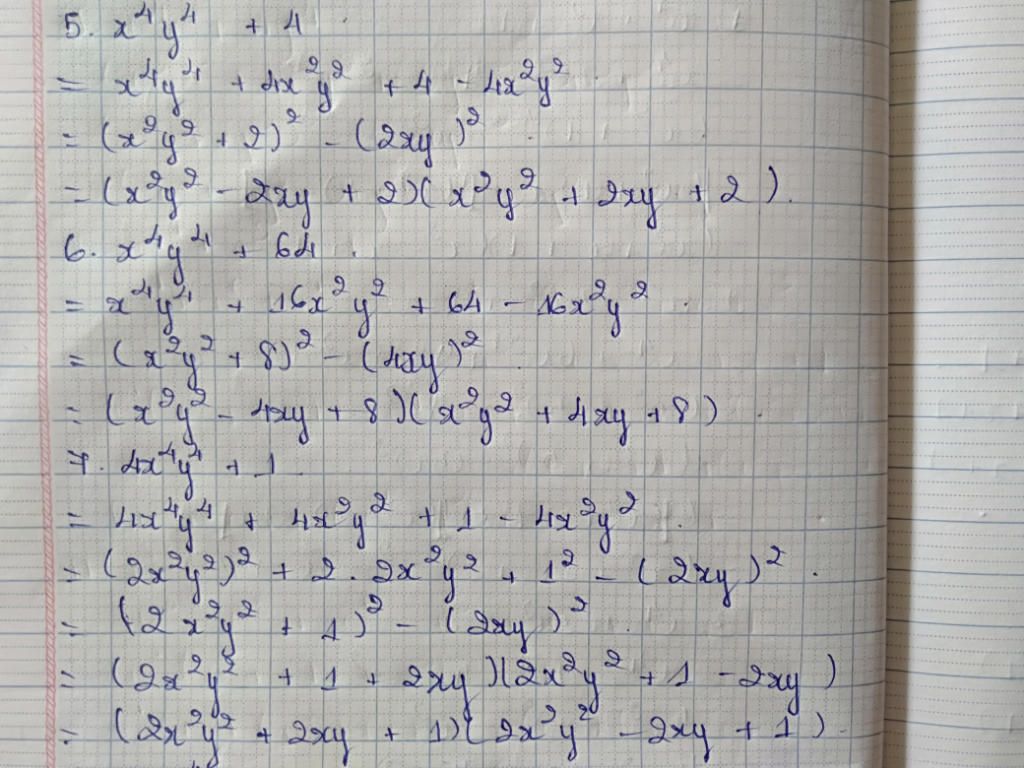 5. x⁴y⁴ + 4
= x⁴y⁴ + 4x²y² + 4 - 4x²y²
= (x²y² + 2)² - (2xy)²
= (x²y² - 2xy + 2)(x²y² + 2xy + 2).
6. x⁴y⁴ + 64.
= x⁴y⁴ + 16x²y² + 64 - 16x²y².
= (x²y² + 8)² - (4xy)².
= (x²y² - 4xy + 8)(x²y² + 4xy + 8).
7. 4x⁴y⁴ + 1
= 4x⁴y⁴ + 4x²y² + 1 - 4x²y².
= (2x²y²)² + 2.2x²y² + 1² - (2xy)².
= (2x²y² + 1)² - (2xy)².
= (2x²y² + 1 + 2xy)(2x²y² + 1 - 2xy)
= (2x²y² + 2xy + 1)(2x²y² - 2xy + 1).